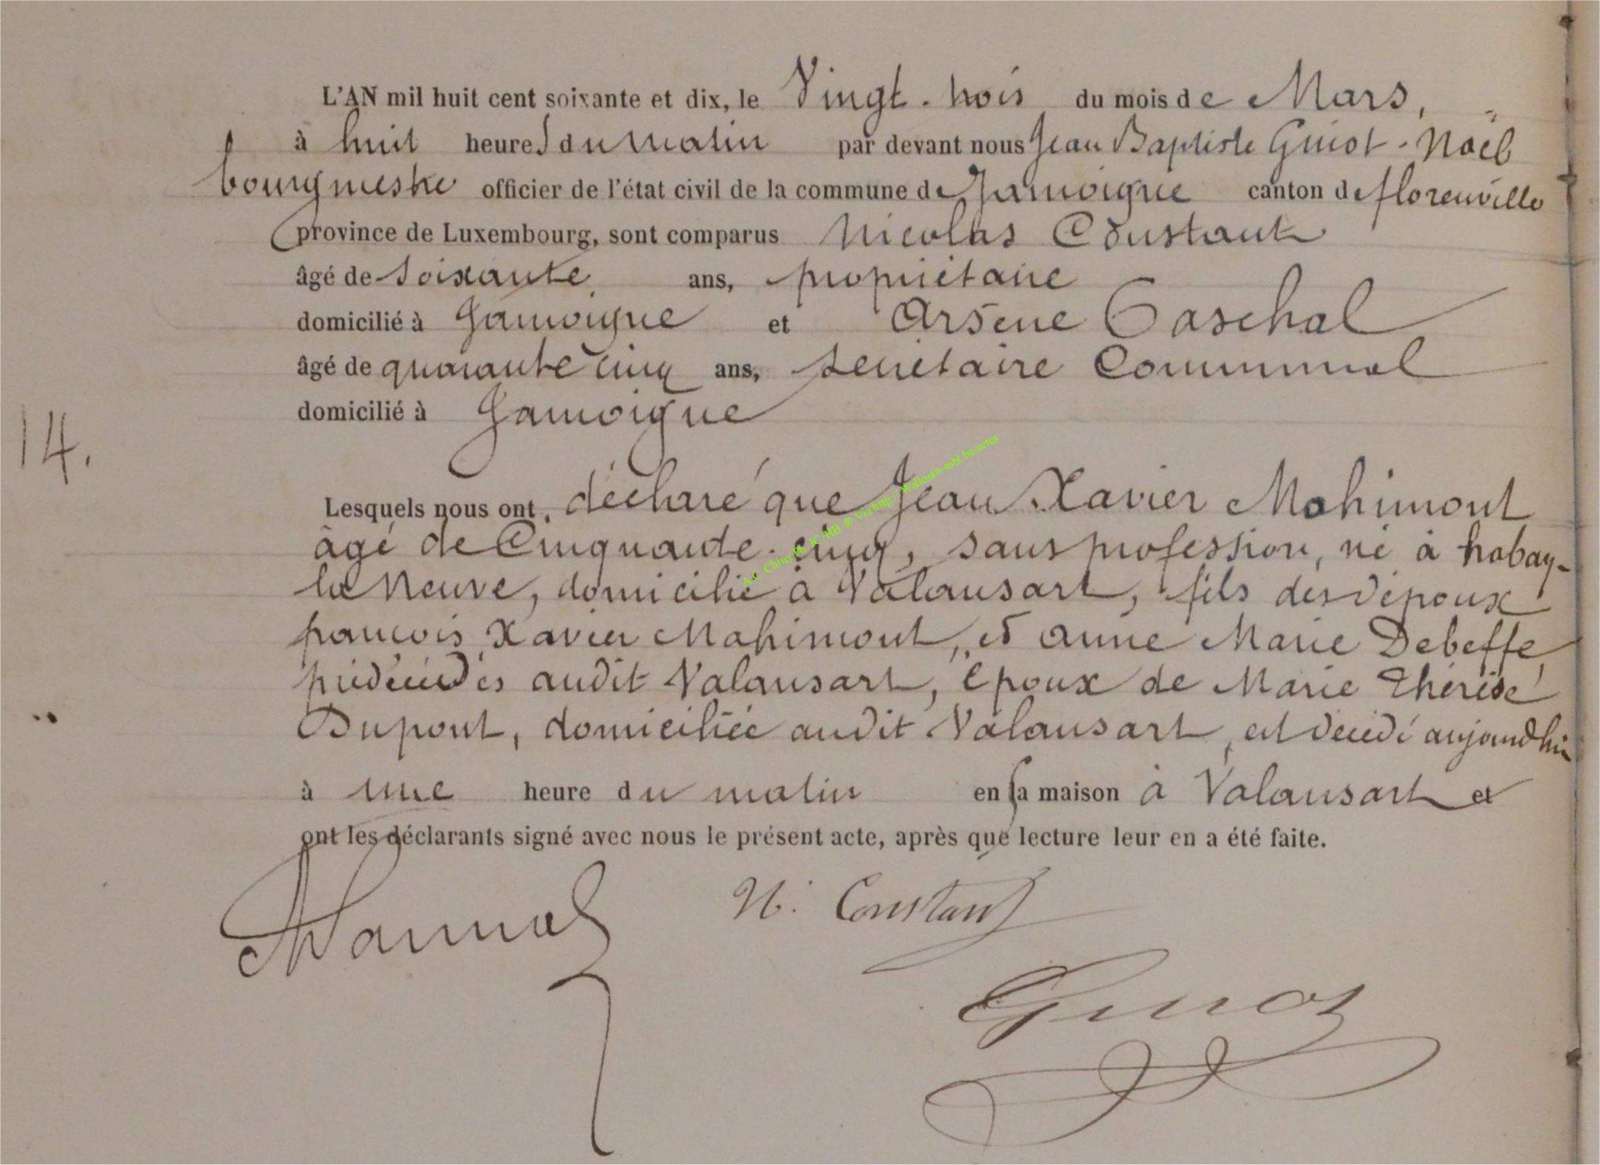 L'AN mil huit cent soixante et dix, le Vingt-trois du mois de Mars,
à huit heures du matin par devant nous Jean Baptiste Guiot-Noël
bourgmestre officier de l'état civil de la commune de Jamoigne canton de florenville
province de Luxembourg, sont comparus Nicolas Constant
âgé de soixante ans, propriétaire
domicilié à Jamoigne et Arsène Paschal
âgé de quarante cinq ans, secrétaire Communal
domicilié à Jamoigne
14.
Lesquels nous ont déclaré que Jean Xavier Mahimont
âgé de Cinquante-cinq, sans profession, né à habay-
la Neuve, domicilié à Valansart, fils des époux
françois Xavier Mahimont, et anne Marie Debeffe,
prédécédés audit Valansart, époux de Marie Thérèse
Dupont, domiciliée audit Valansart, est décédé aujourdhui
à une heure du matin en sa maison à Valansart et
ont les déclarants signé avec nous le présent acte, après que lecture leur en a été faite.
N. Constant
Guiot